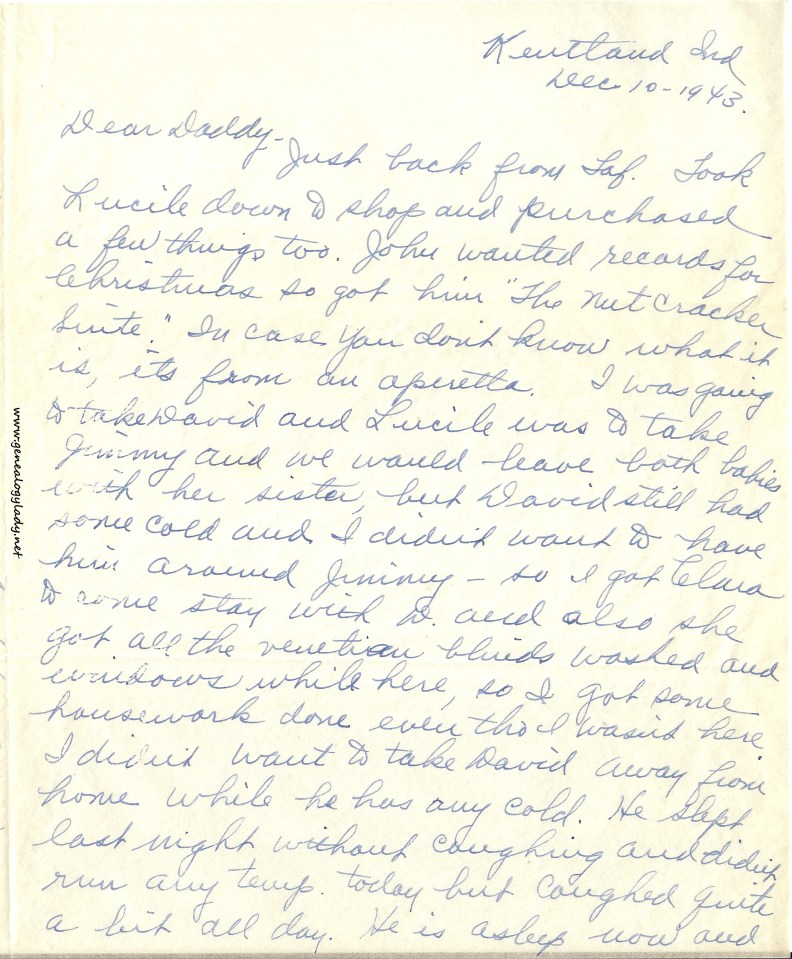 Kentland Ind
Dec. 10-1943.
Dear Daddy-
Just back from Laf. Took
Lucile down to shop and purchased
a few things too. John wanted records for
Christmas so got him "The Nut Cracker
Suite." In case you don't know what it
is, it's from an operetta. I was going
to take David and Lucile was to take
Jimmy and we would leave both babies
with her sister, but David still had
some cold and I didn't want to have
him around Jimmy - so I got Clara
to come stay with D. and also she
got all the venetian blinds washed and
windows while here, so I got some
housework done even tho I wasn't here
I didn't want to take David away from
home while he has any cold. He slept
last night without coughing and didn't
run any temp. today but coughed quite
a bit all day. He is asleep now and
www.genealogylady.net